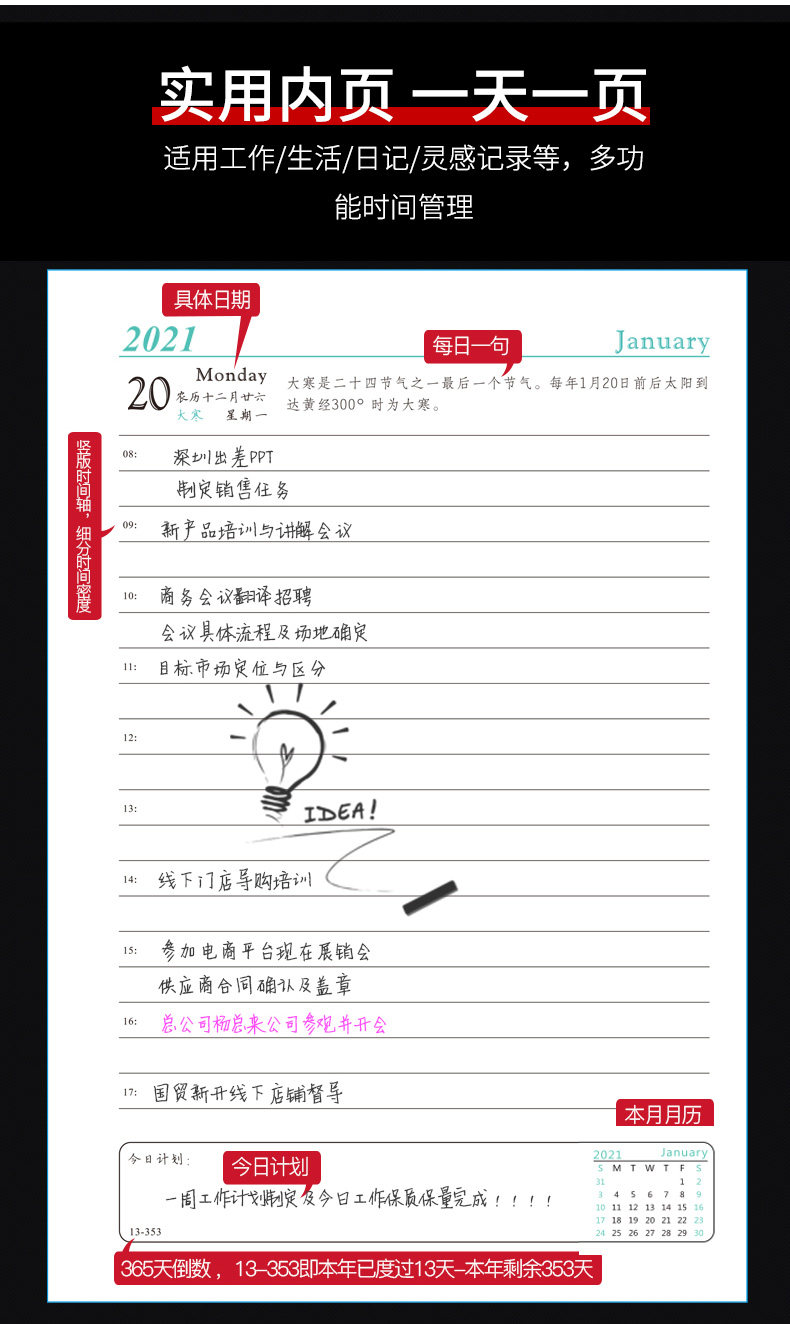 实用内页 一天一页
适用工作/生活/日记/灵感记录等，多功
能时间管理
具体日期
2021
January
每日一句
20
Monday
农历十二月廿六
大寒 星期一
大寒是二十四节气之一最后一个节气。每年1月20日前后太阳到
达黄经300° 时为大寒。
竖版时间轴，细分时间密度
08: 深圳出差PPT
制定销售任务
09: 新产品培训与讲解会议
10: 商务会议翻译招聘
会议具体流程及场地确定
11: 目标市场定位与区分
12:
13:
IDEA!
14: 线下门店导购培训
15: 参加电商平台现在展销会
供应商合同确认及盖章
16: 总公司杨总来公司参观并开会
17: 国贸新开线下店铺督导
本月月历
今日计划:
今日计划
一周工作计划制定及今日工作保质保量完成！！！！
13-353
2021 January
S M T W T F S
31 1 2
3 4 5 6 7 8 9
10 11 12 13 14 15 16
17 18 19 20 21 22 23
24 25 26 27 28 29 30
365天倒数，13-353即本年已度过13天-本年剩余353天